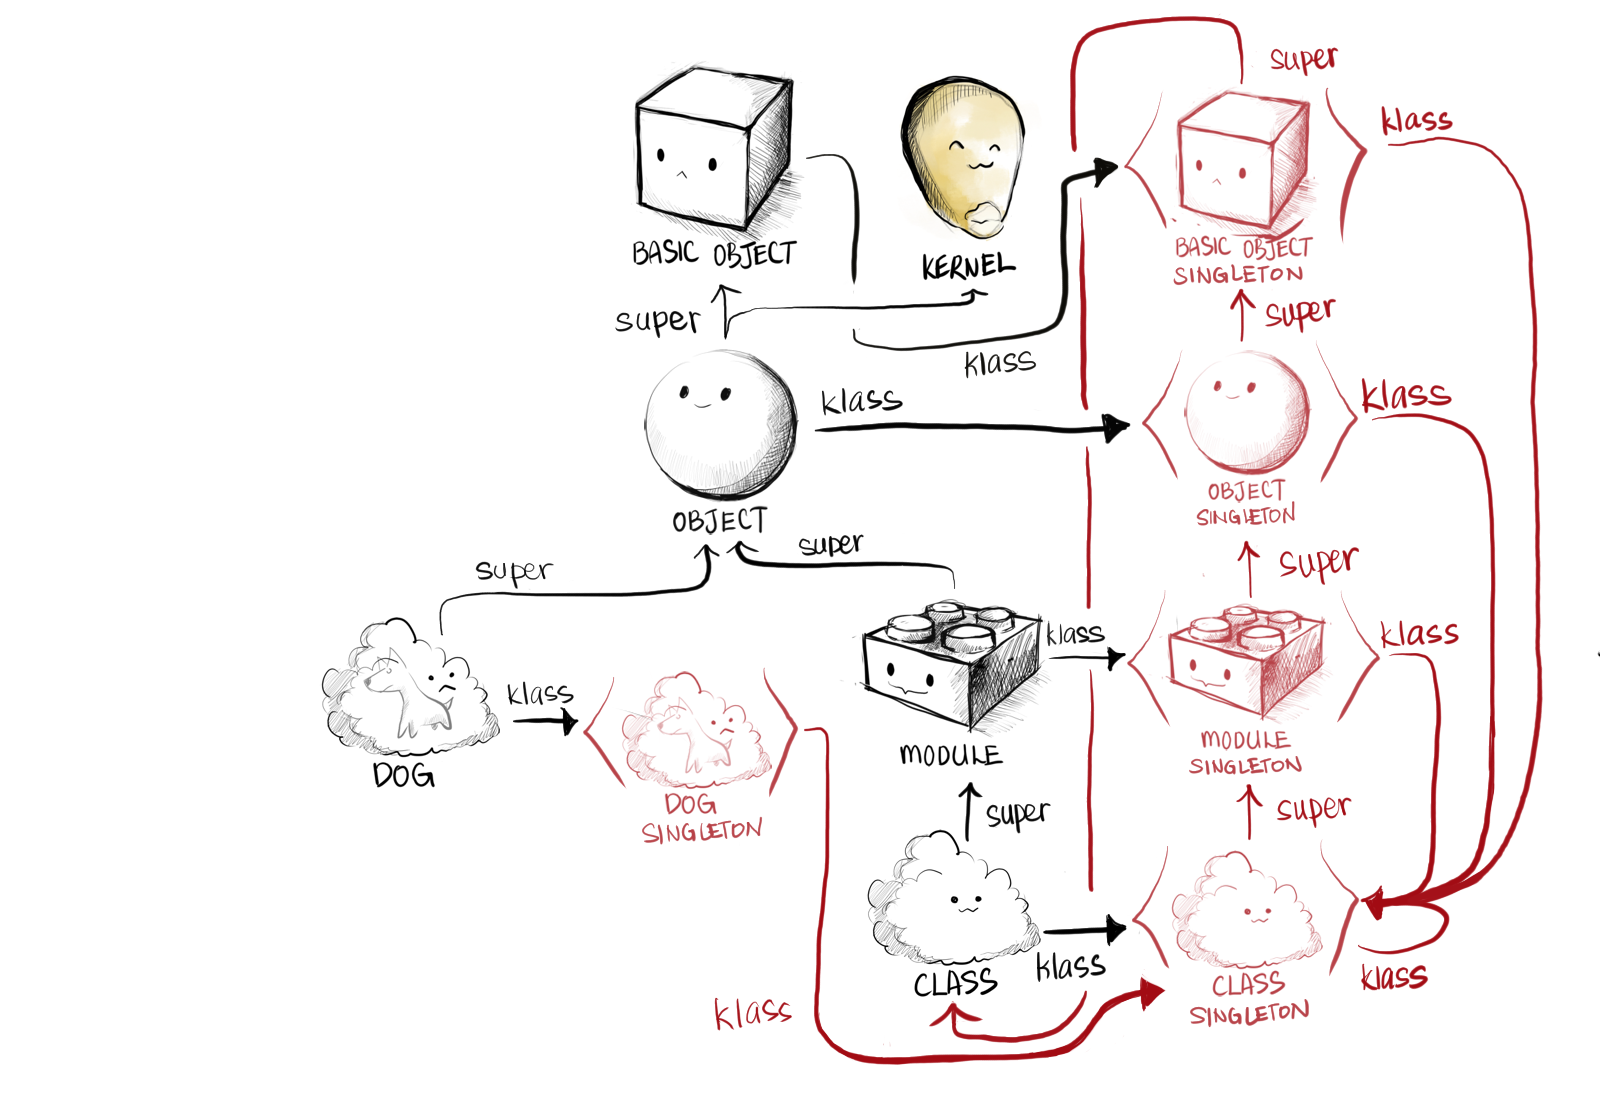 super
klass
BASIC OBJECT
KERNEL
BASIC OBJECT
SINGLETON
super
super
klass
klass
klass
OBJECT
OBJECT
SINGLETON
super
super
super
klass
klass
klass
DOG
DOG
SINGLETON
MODULE
MODULE
SINGLETON
super
super
klass
klass
CLASS
CLASS
SINGLETON
klass